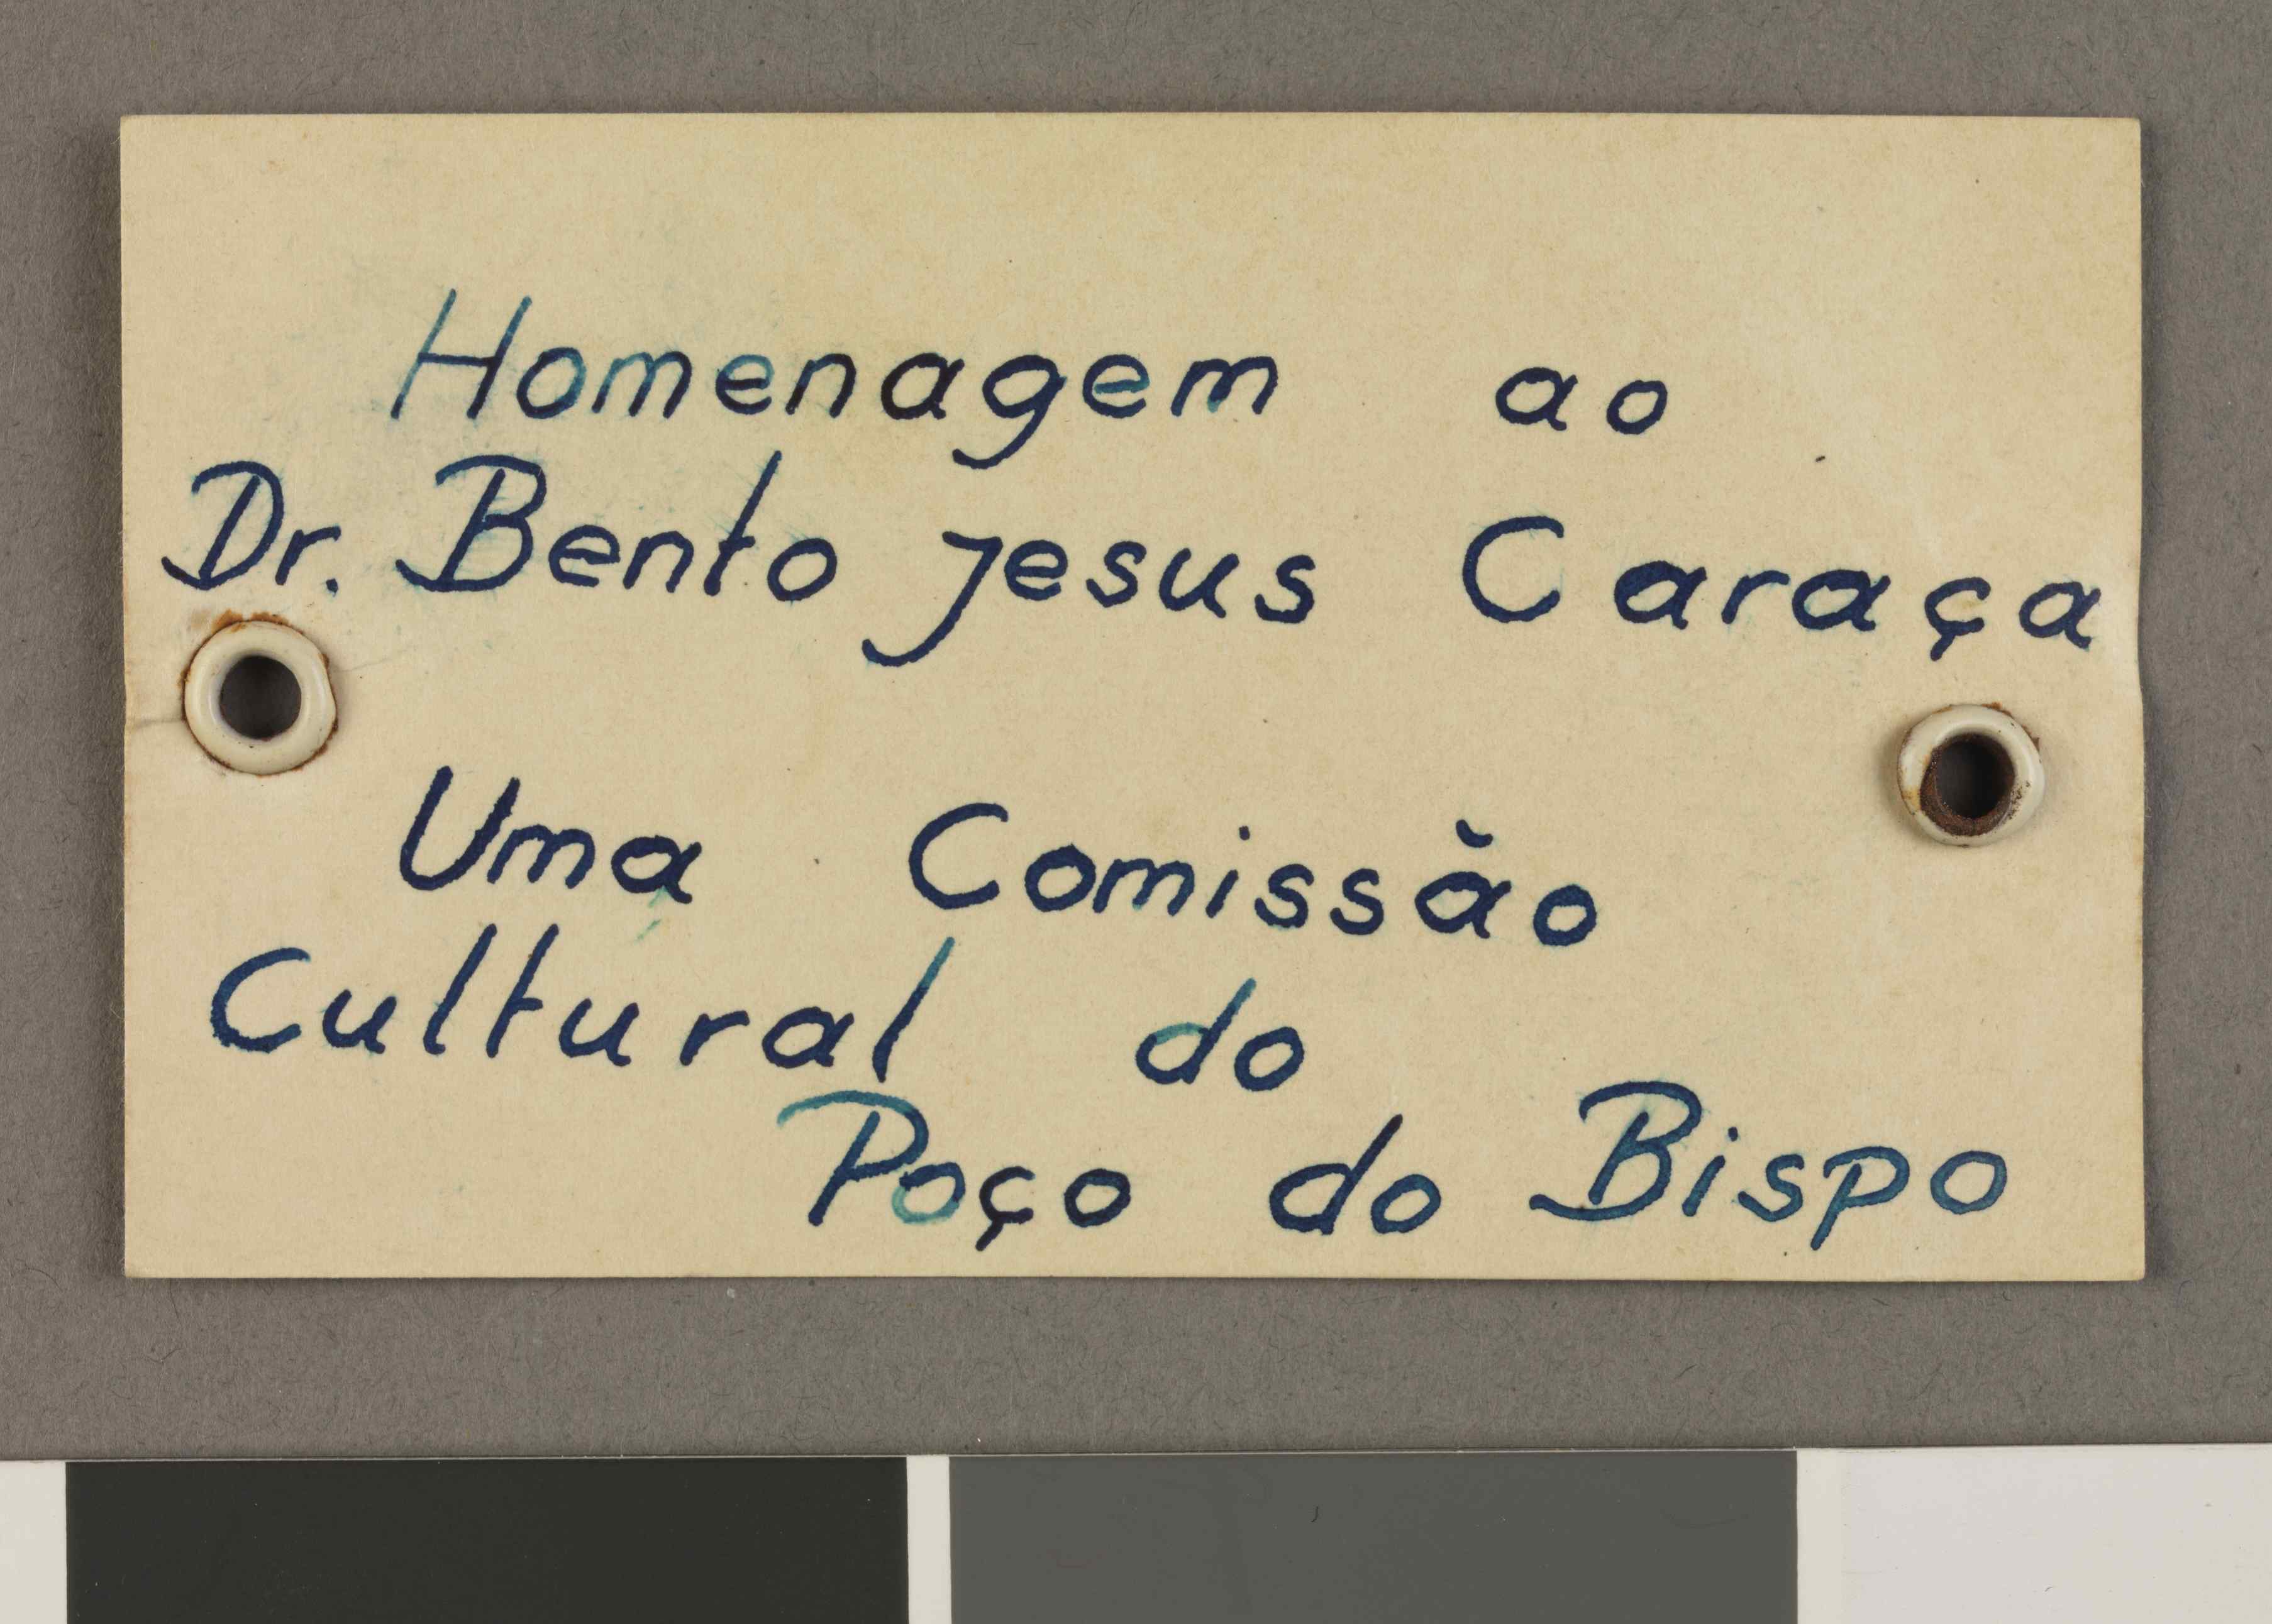 Homenagem ao
Dr. Bento Jesus Caraça
Uma Comissão
Cultural do
Poço do Bispo